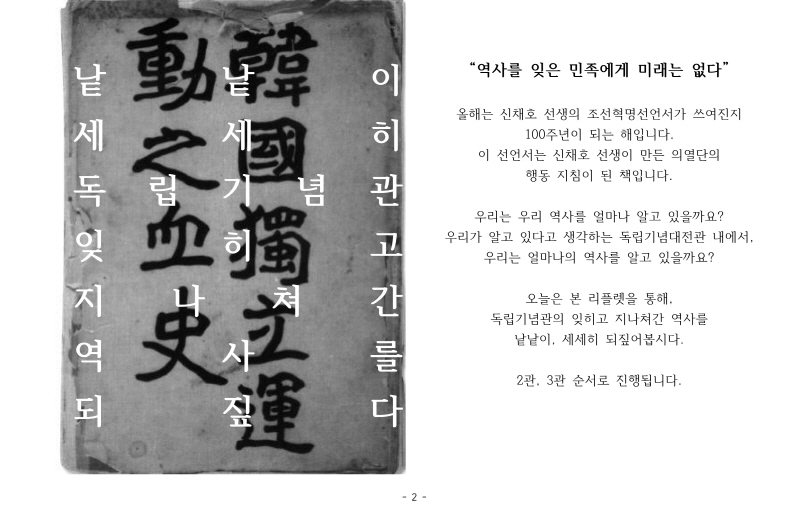 韓國獨立運
動之血史
낱 낱 이
세 세 히
독 립 기 념 관
잊 히 고
지 나 쳐 간
역 사 를
되 짚 다
“역사를 잊은 민족에게 미래는 없다”
올해는 신채호 선생의 조선혁명선언서가 쓰여진지
100주년이 되는 해입니다.
이 선언서는 신채호 선생이 만든 의열단의
행동 지침이 된 책입니다.
우리는 우리 역사를 얼마나 알고 있을까요?
우리가 알고 있다고 생각하는 독립기념대전관 내에서,
우리는 얼마나의 역사를 알고 있을까요?
오늘은 본 리플렛을 통해,
독립기념관의 잊히고 지나쳐간 역사를
낱낱이, 세세히 되짚어봅시다.
2관, 3관 순서로 진행됩니다.
- 2 -